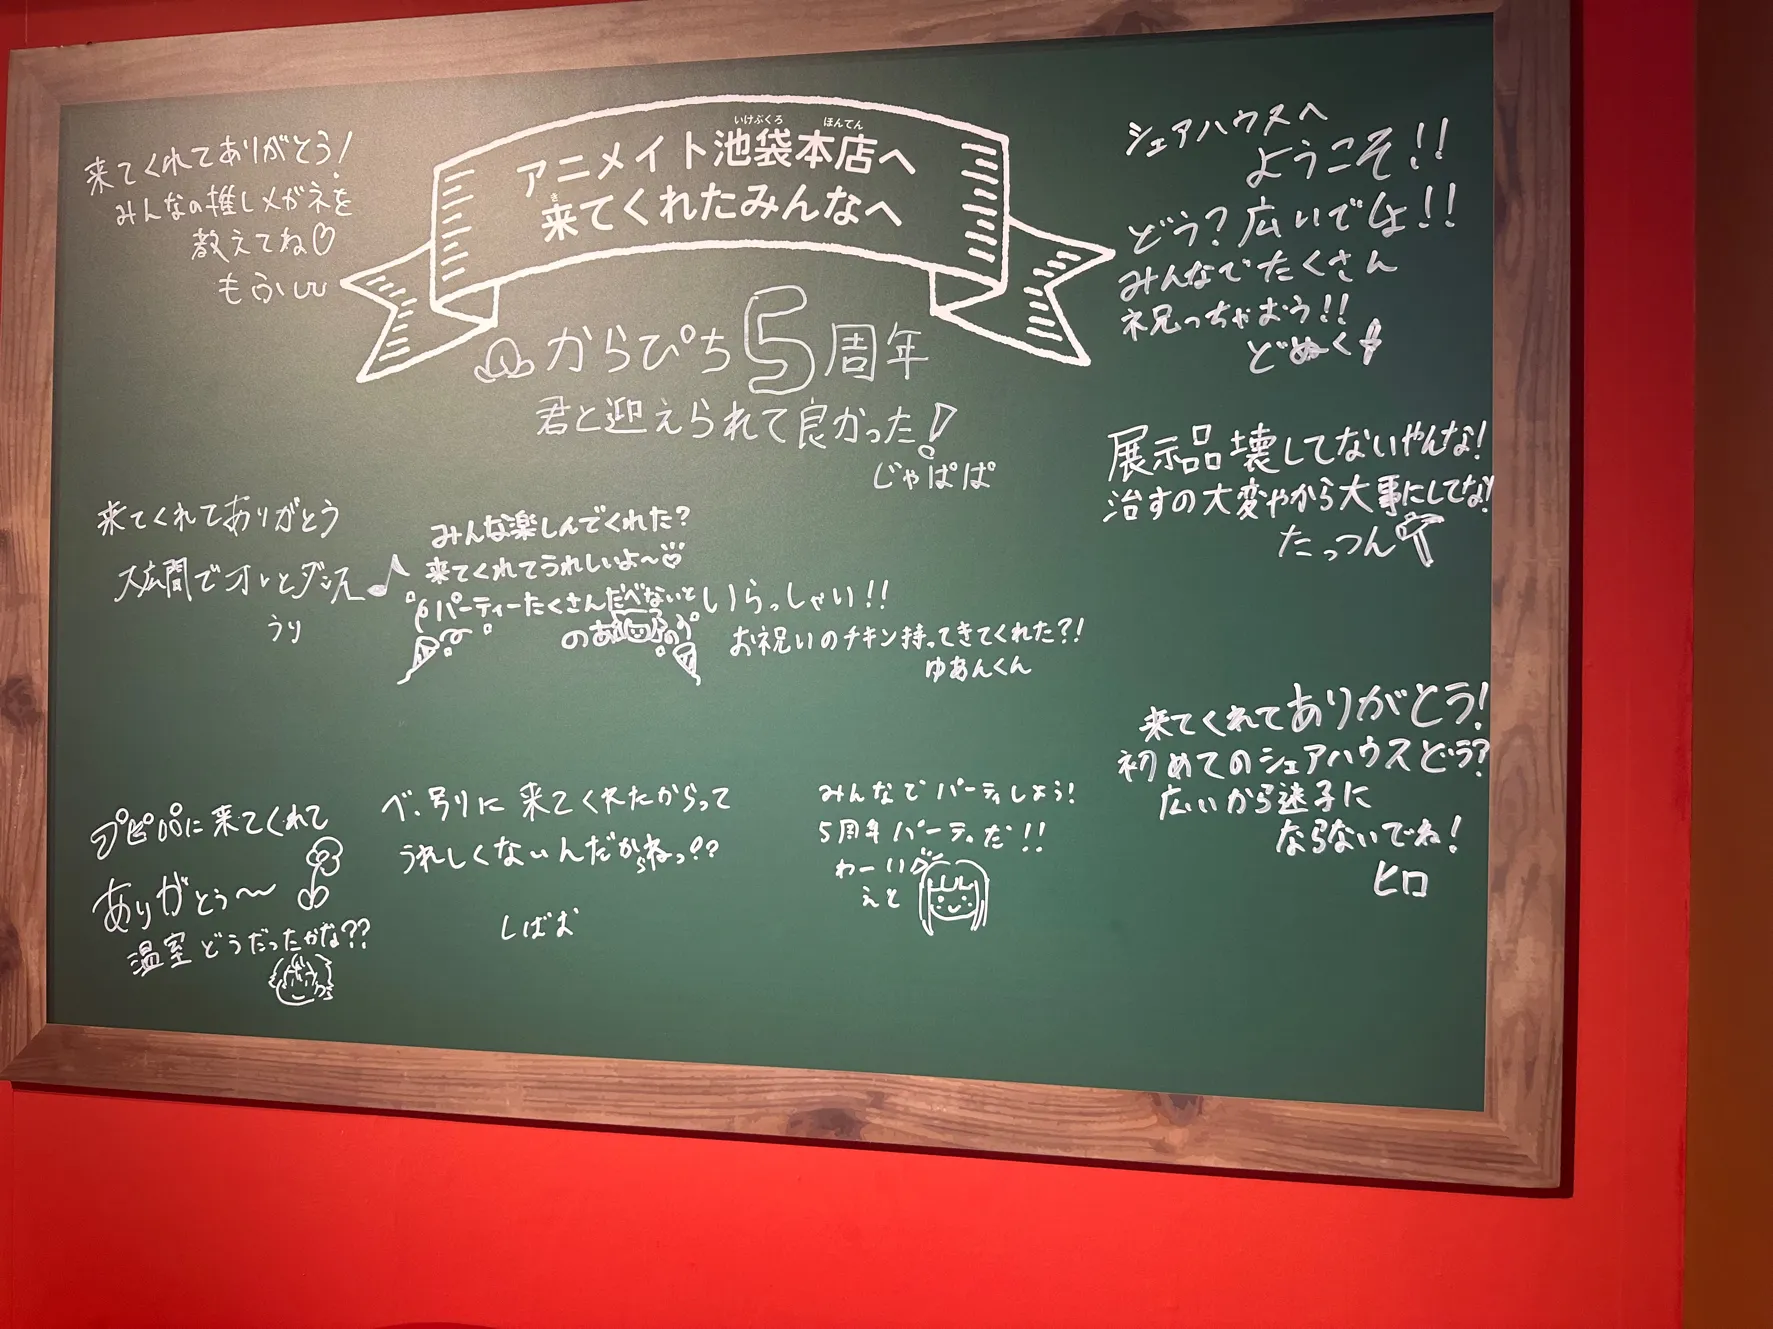 アニメイト池袋本店へ
いけぶくろ ほんてん
来てくれたみんなへ
き
来てくれてありがとう!
みんなの推しメガネを
教えてね♡
もふ
からぴち5周年
君と迎えられて良かった!
じゃぱぱ
シェアハウスへ
ようこそ!!
どう?広いでしょ!!
みんなでたくさん
祝っちゃおう!!
どぬく
展示品壊してないやんな!
治すの大変やから大事にしてな!
たっつん
来てくれてありがとう
大広間でオレとダンス♪
うり
みんな楽しんでくれた?
来てくれてうれしいよ〜♡
パーティーたくさんたべないと
のあ
いらっしゃい!!
お祝いのチキン持ってきてくれた?!
ゆあんくん
来てくれてありがとう!
初めてのシェアハウスどう?
広いから迷子に
ならないでね!
ヒロ
プピパに来てくれて
ありがとう〜
温室どうだったかな??
べ、別に来てくれたからって
うれしくないんだからねっ!?
しばお
みんなでパーティしよう!
5周年パーティだ!!
わーい
えと